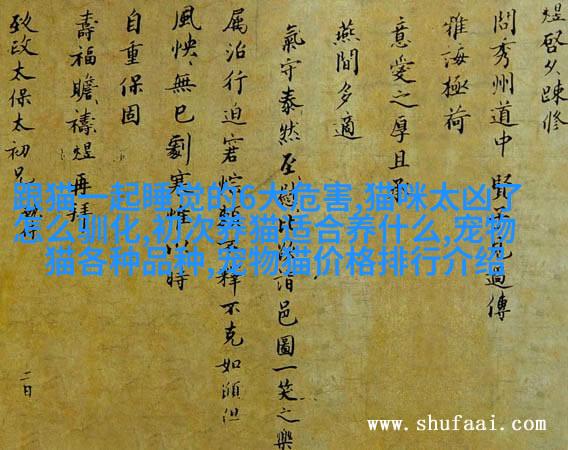 煜啓久踈修
問秀州道中賢過傳
雅誨極荷
意愛之厚且承
燕閒多適
氣守泰然至慰比欲詣邑圖一笑之樂
属治行迫窘不克如願但
風怏無已劇寒惟時
自重保固
壽福瞻禱煜再拜
致政太保太初兄
二日
跟猫一起睡觉的6大危害,猫咪太凶了
怎么驯化,初次养猫适合养什么,宠物
猫各种品种,宠物猫价格排行介绍
www.shufaai.com